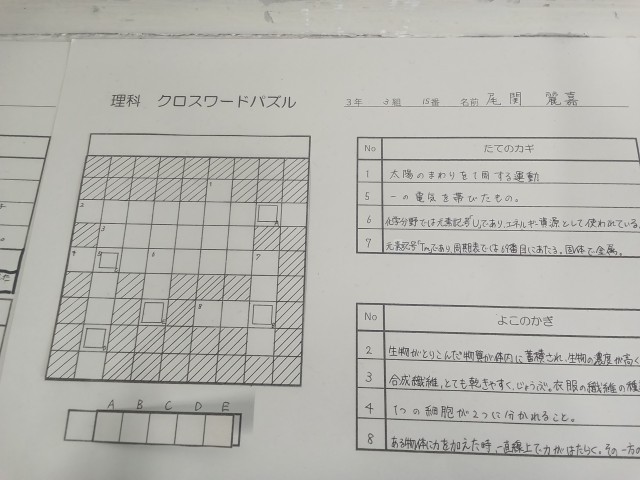 理科 クロスワードパズル
3年 3組 15番 名前 尾関 麗嘉
No たてのカギ
1 太陽のまわりを1周する運動
5 一の電気を帯びたもの。
6 化学分野では元素記号「U」であり、エネルギー資源として使われている。
7 元素記号「Tm」であり、周期表では69番目にあたる。固体で金属。
No よこのかぎ
2 生物がとりこんだ物質が体内に蓄積され、生物の濃度が高く
3 合成繊維、とても乾きやすく、じょうぶ。衣服の繊維の種
4 1つの細胞が2つに分かれること。
8 ある物体に力を加えた時、一直線上で力がはたらく。その一方の
1
2
3
4 5 6 7
8
A B C D E